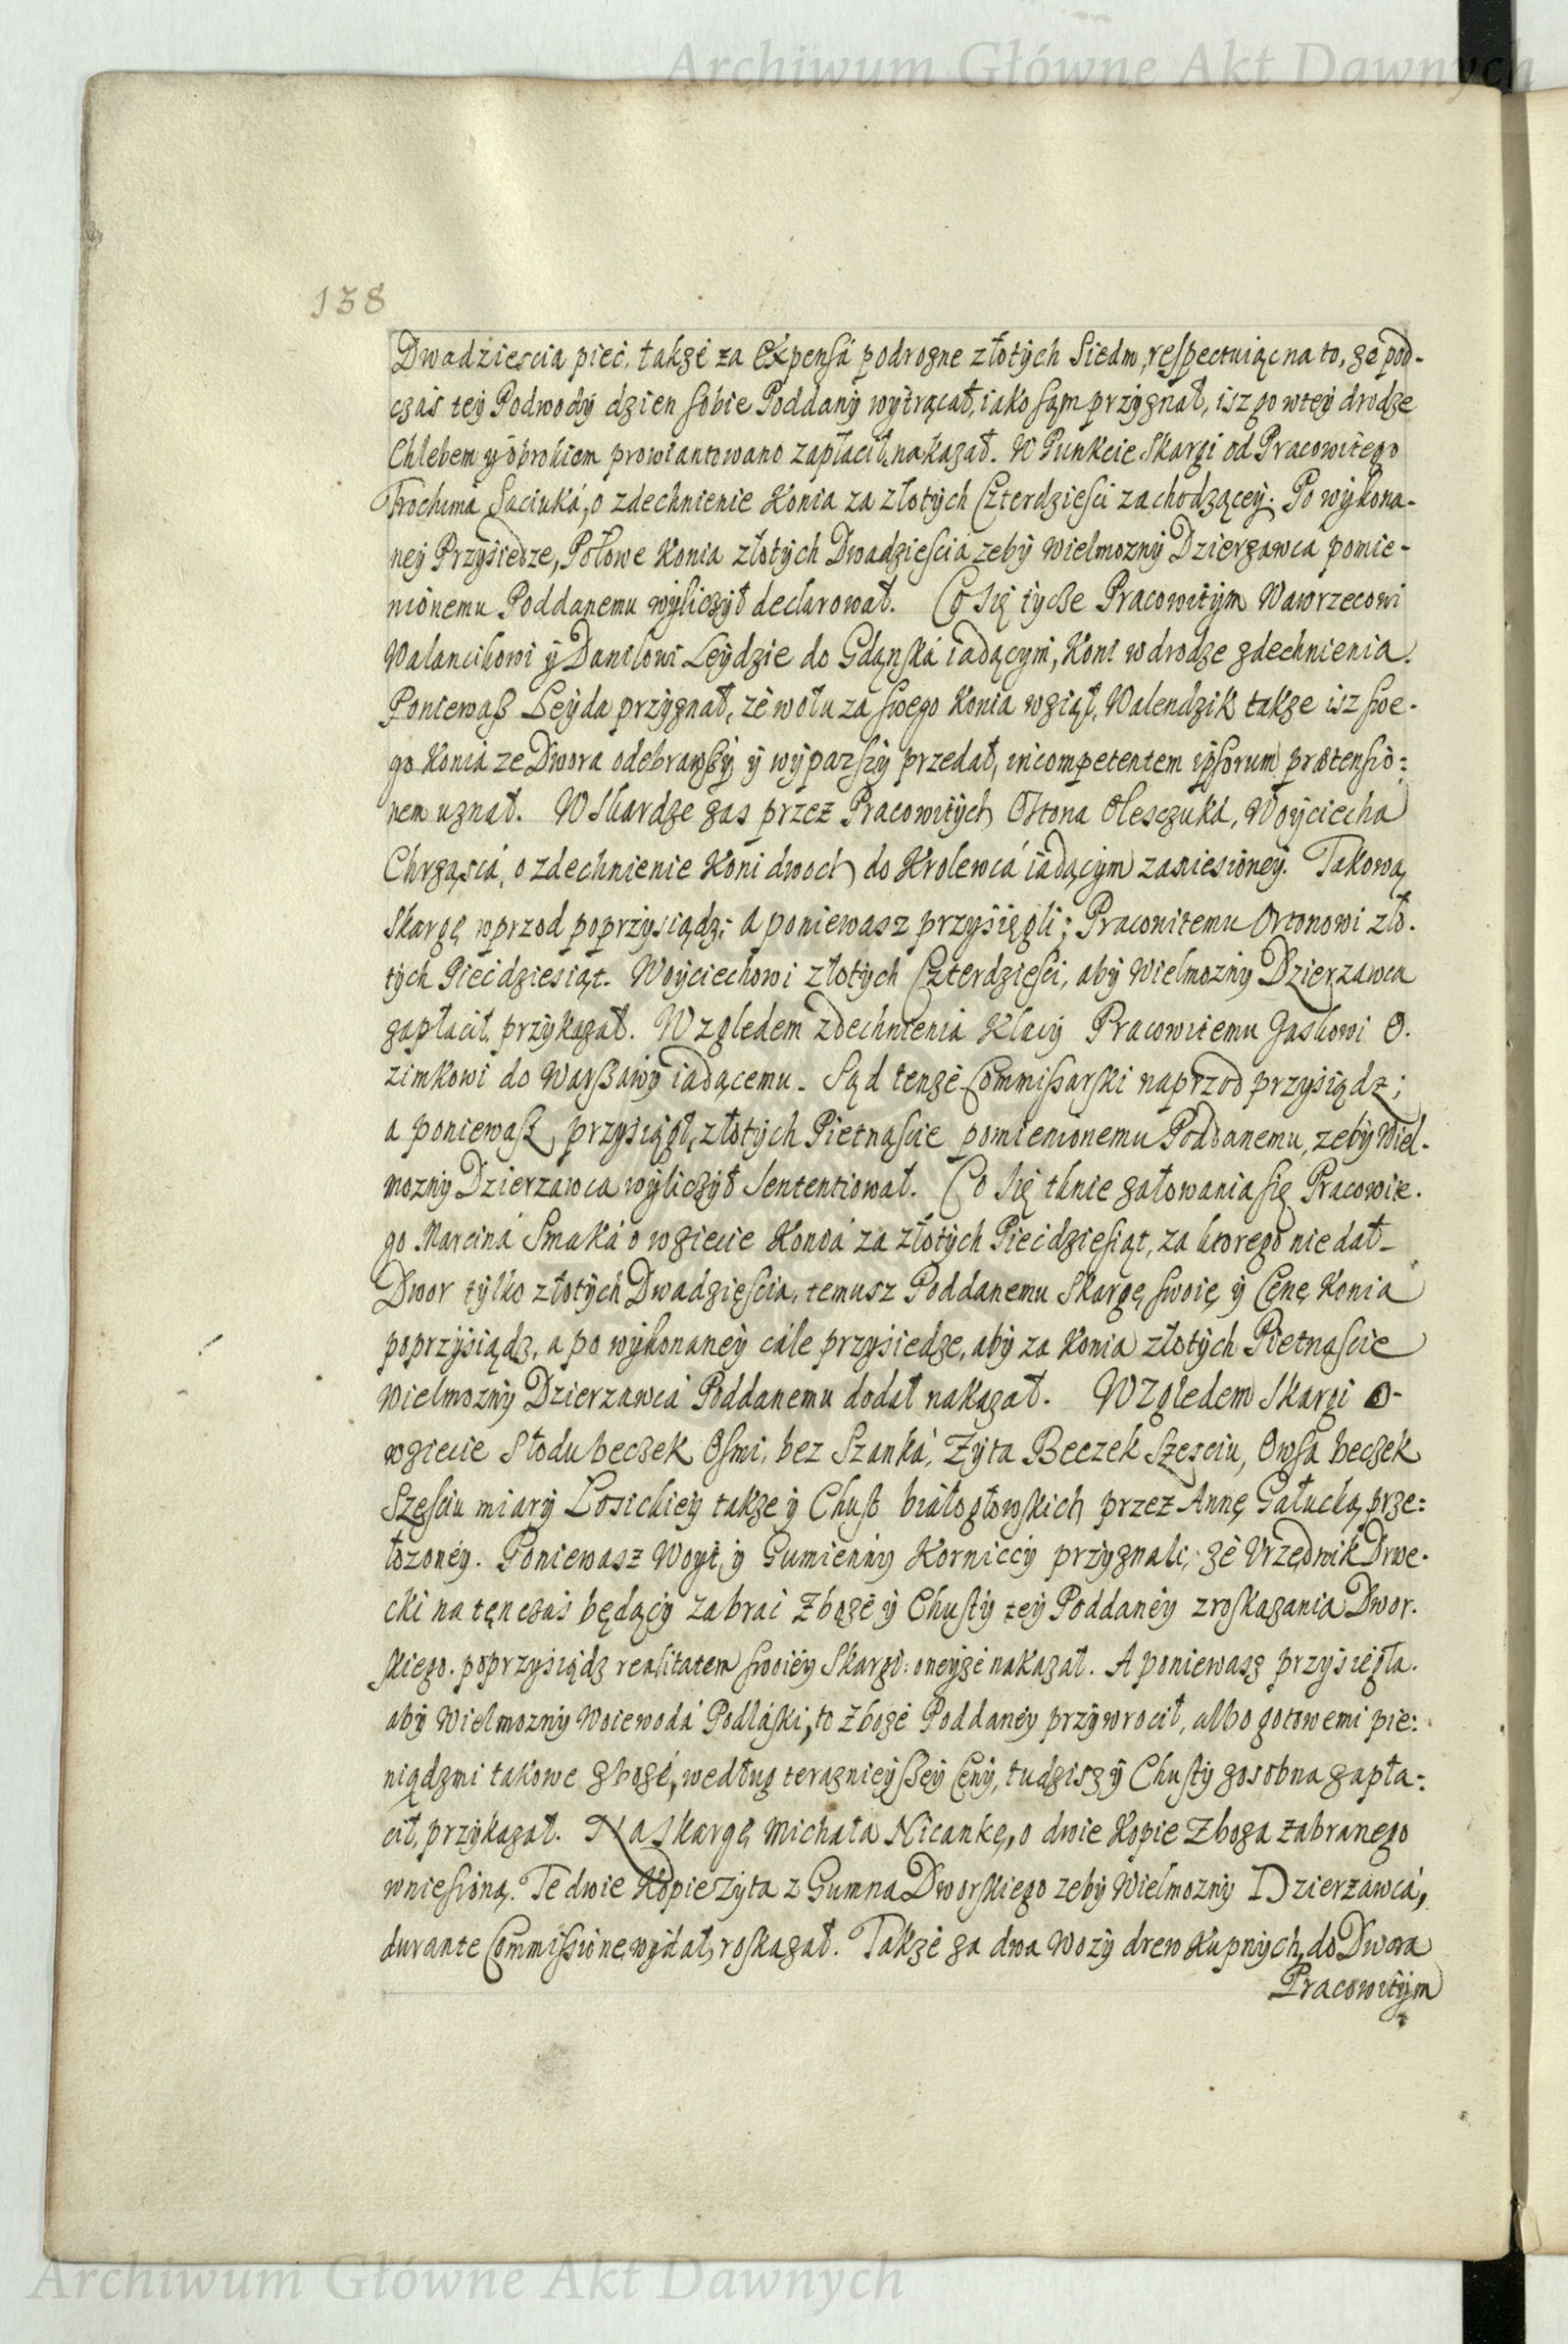 Archiwum Główne Akt Dawnych
138
Dwadziescia pieć, także za Expensá podrozne złotych Siedm, respectuiąc na to, ze pod-
czás tey Podwody dzien sobie Poddany wytrącał, iako sąm przyznał, isz go wtey drodze
Chlebem y obrokiem prowiantowano zapłacił nakazał. W Punkcie Skargi od Pracowitego
Trochima Saciuká, o zdechnienie Konia za złotych Czterdziesci zachodzącey. Po wykona-
ney Przysiedze, Połowe Konia złotych Dwadziesciá zeby Wielmozny Dzierzawca pomie-
nionemu Poddanemu wyliczył declarował. Co się tycze Pracowitym Wawrzecowi
Walancikowi y Daniłowi Leydzie do Gdąnská iadącym, Koni w drodze zdechnienia.
Poniewasz Leyda przyznał, ze wołu zá swego Konia wziął, Walendzik takze isz swe-
go Koniá ze Dwora odebrawszy y wyparszy przedał, incompetentem ipsorum prætensio:
nem uznał. W Skardze zas przez Pracowitych Ostona Olesczuká, Woyciecha
Chrząscá, o zdechnienie Koni dwoch do Krolewcá iadącym zaniesioney. Takową
Skargę wprzod poprzysiądz; a poniewasz przysięgli; Pracowitemu Ortonowi zło-
tych Piećdziesiąt. Woyciechowi złotych Czterdziesci, aby Wielmozny Dzierzawca
zapłacił, przykazał. Względem zdechnienia Klaczy Pracowitemu Jaskowi O-
zimkowi do Warszawy iadącemu. Sąd tenze Commissarski naprzod przysiądz;
a poniewasz przysiągł, złotych Pietnascie pomienionemu Poddanemu, zeby Wiel-
mozny Dzierzawca wyliczył sententiował. Co się tknie załowania się Pracowite-
go Marcina Smaká o wziecie Konia za złotych Piećdziesiąt, za ktorego nie dał
Dwor tylko złotych Dwadziescia, temusz Poddanemu Skargę swoię y Cenę Konia
poprzysiądz, a po wykonaney cale przysiedze, aby za Konia złotych Pietnascie
Wielmozny Dzierzawcá Poddanemu dodał nakazał. Względem Skargi o
wziecie Słodu beczek Osmi, bez Szanká, Zyta Beczek Szesciu, Owsa beczek
Szesciu miary Łosickiey takze y Chust białogłowskich przez Annę Gałucką prze:
łozoney. Poniewasz Woyt, y Gumienny Korniccy przyznali, ze Vrzędnik Drwe-
cki na tęn czás będący zabrać Zboze y Chusty tey Poddaney z roskazania Dwor-
skiego. poprzysiądz realitatem swoiey Skargi: oneyze nakazał. A poniewasz przysięgła.
aby Wielmozny Woiewodá Podláski, to zboze Poddaney przywrocił, albo gotowemi pie:
niądzmi takowe zboze, według teraznieyszey Ceny, tudzisz y Chusty zosobna zapła-
cił, przykazał. Na skargę Michała Nicankę, o dwie Kopie Zboza zabranego
wniesioną. Te dwie Kopie zyta z Gumna Dworskiego zeby Wielmozny Dzierzawcá,
durante Commissione wydał, roskazał. Takze za dwa Wozy drew Kupnych, do Dwora
Pracowitym
Archiwum Główne Akt Dawnych